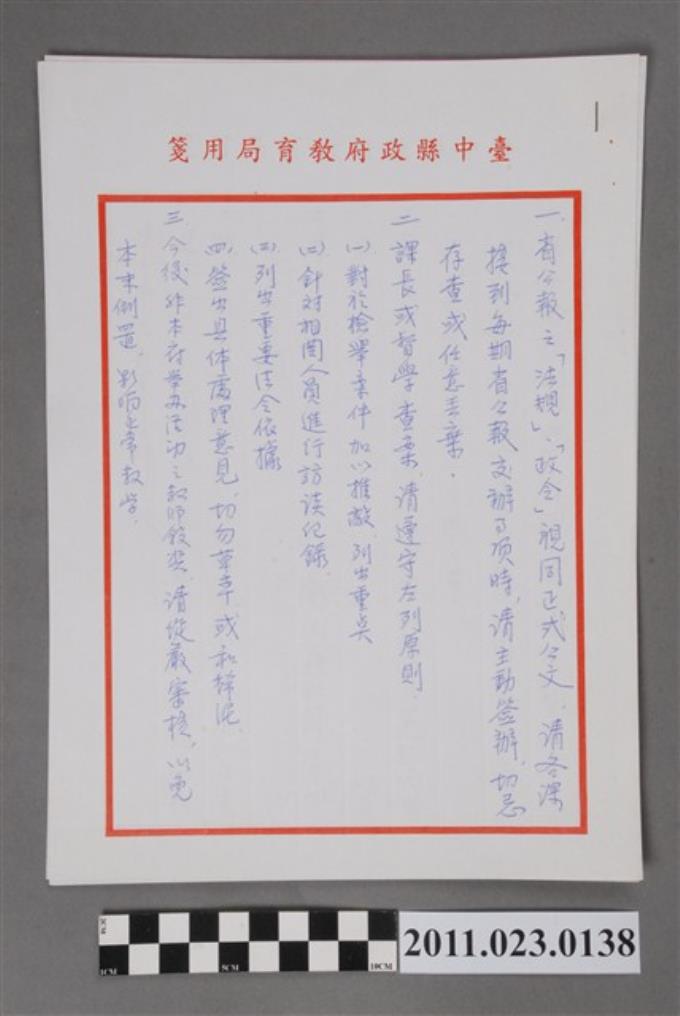 臺中縣政府教育局用箋
一、省公報之「法規」、「政令」視同正式公文，請各課
接到每期省公報交辦事項時，請主動簽辦，切忌
存查或任意丟棄。
二、課長或督學查案，請遵守左列原則
㈠對於檢舉案件加以推敲，列出重点
㈡針对相関人員進行訪談紀錄
㈢列出重要法令依據
㈣簽出具体處理意見，切勿草率或和稀泥
三、今後非本府舉办活动之教师敘奖，请從嚴審核，以免
本末倒置，影响正常教学。
3CM
1CM
5CM
10CM
2011.023.0138